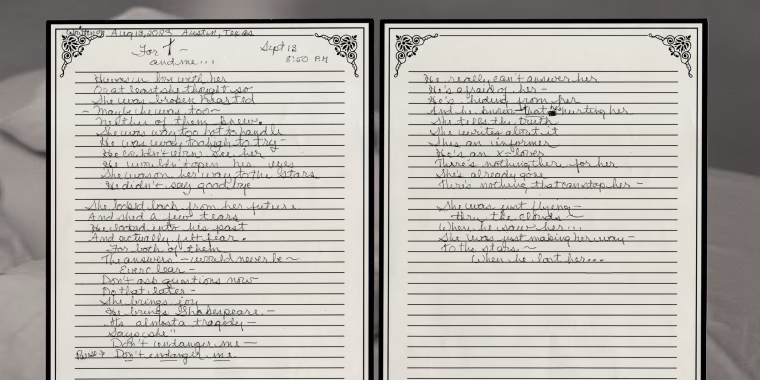 Written Aug 13, 2023 Austin, Texas
For T –
and me...
Sept 13
8:50 P.M
He was in love with her
Or at least she thought so
She was broken hearted
– Maybe he were too –
Neither of them knew.
She was way too hot to handle
He was way too high to try –
He couldn't even see her
He wouldn't open his eyes
She was on her way to the stars
He didn't say goodbye
She looked back from her future
And shed a few tears
He looked into his past
And actually felt fear.
For both of them
The answers – would never be ~
Ever clear –
Don't ask questions now
Do that later –
She brings joy
He brings Shakespeare –
It's almost a tragedy –
Says she"
Don't endanger me
Pause → Don't endanger me.
He really can't answer her
He's afraid of her –
He's hiding from her
And he that he's hurting her
She tells the truth
She writes about it
She's an informer
He's an x-lover
There's nothing there for her
She's already gone
There's nothing that can stop her –
She was just flying –
thru the clouds –
When he saw her...
She was just making her way –
To the stars ~
When he lost her...